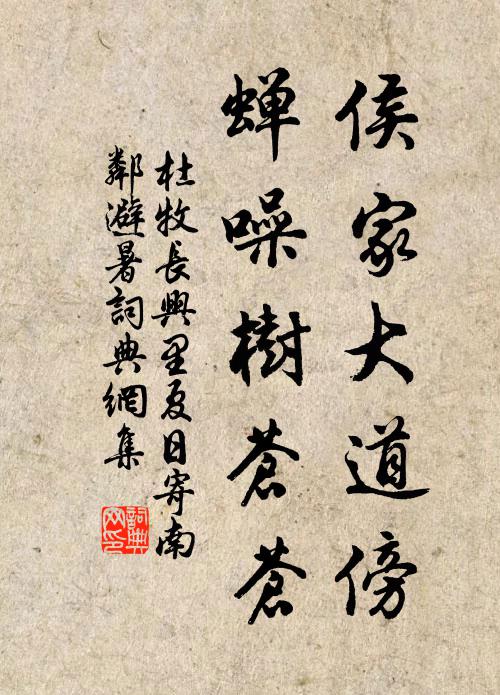 侯家大道傍
蟬噪樹蒼蒼
杜牧長興里夏日寄南
鄰避暑詞典網集
詞典
网印